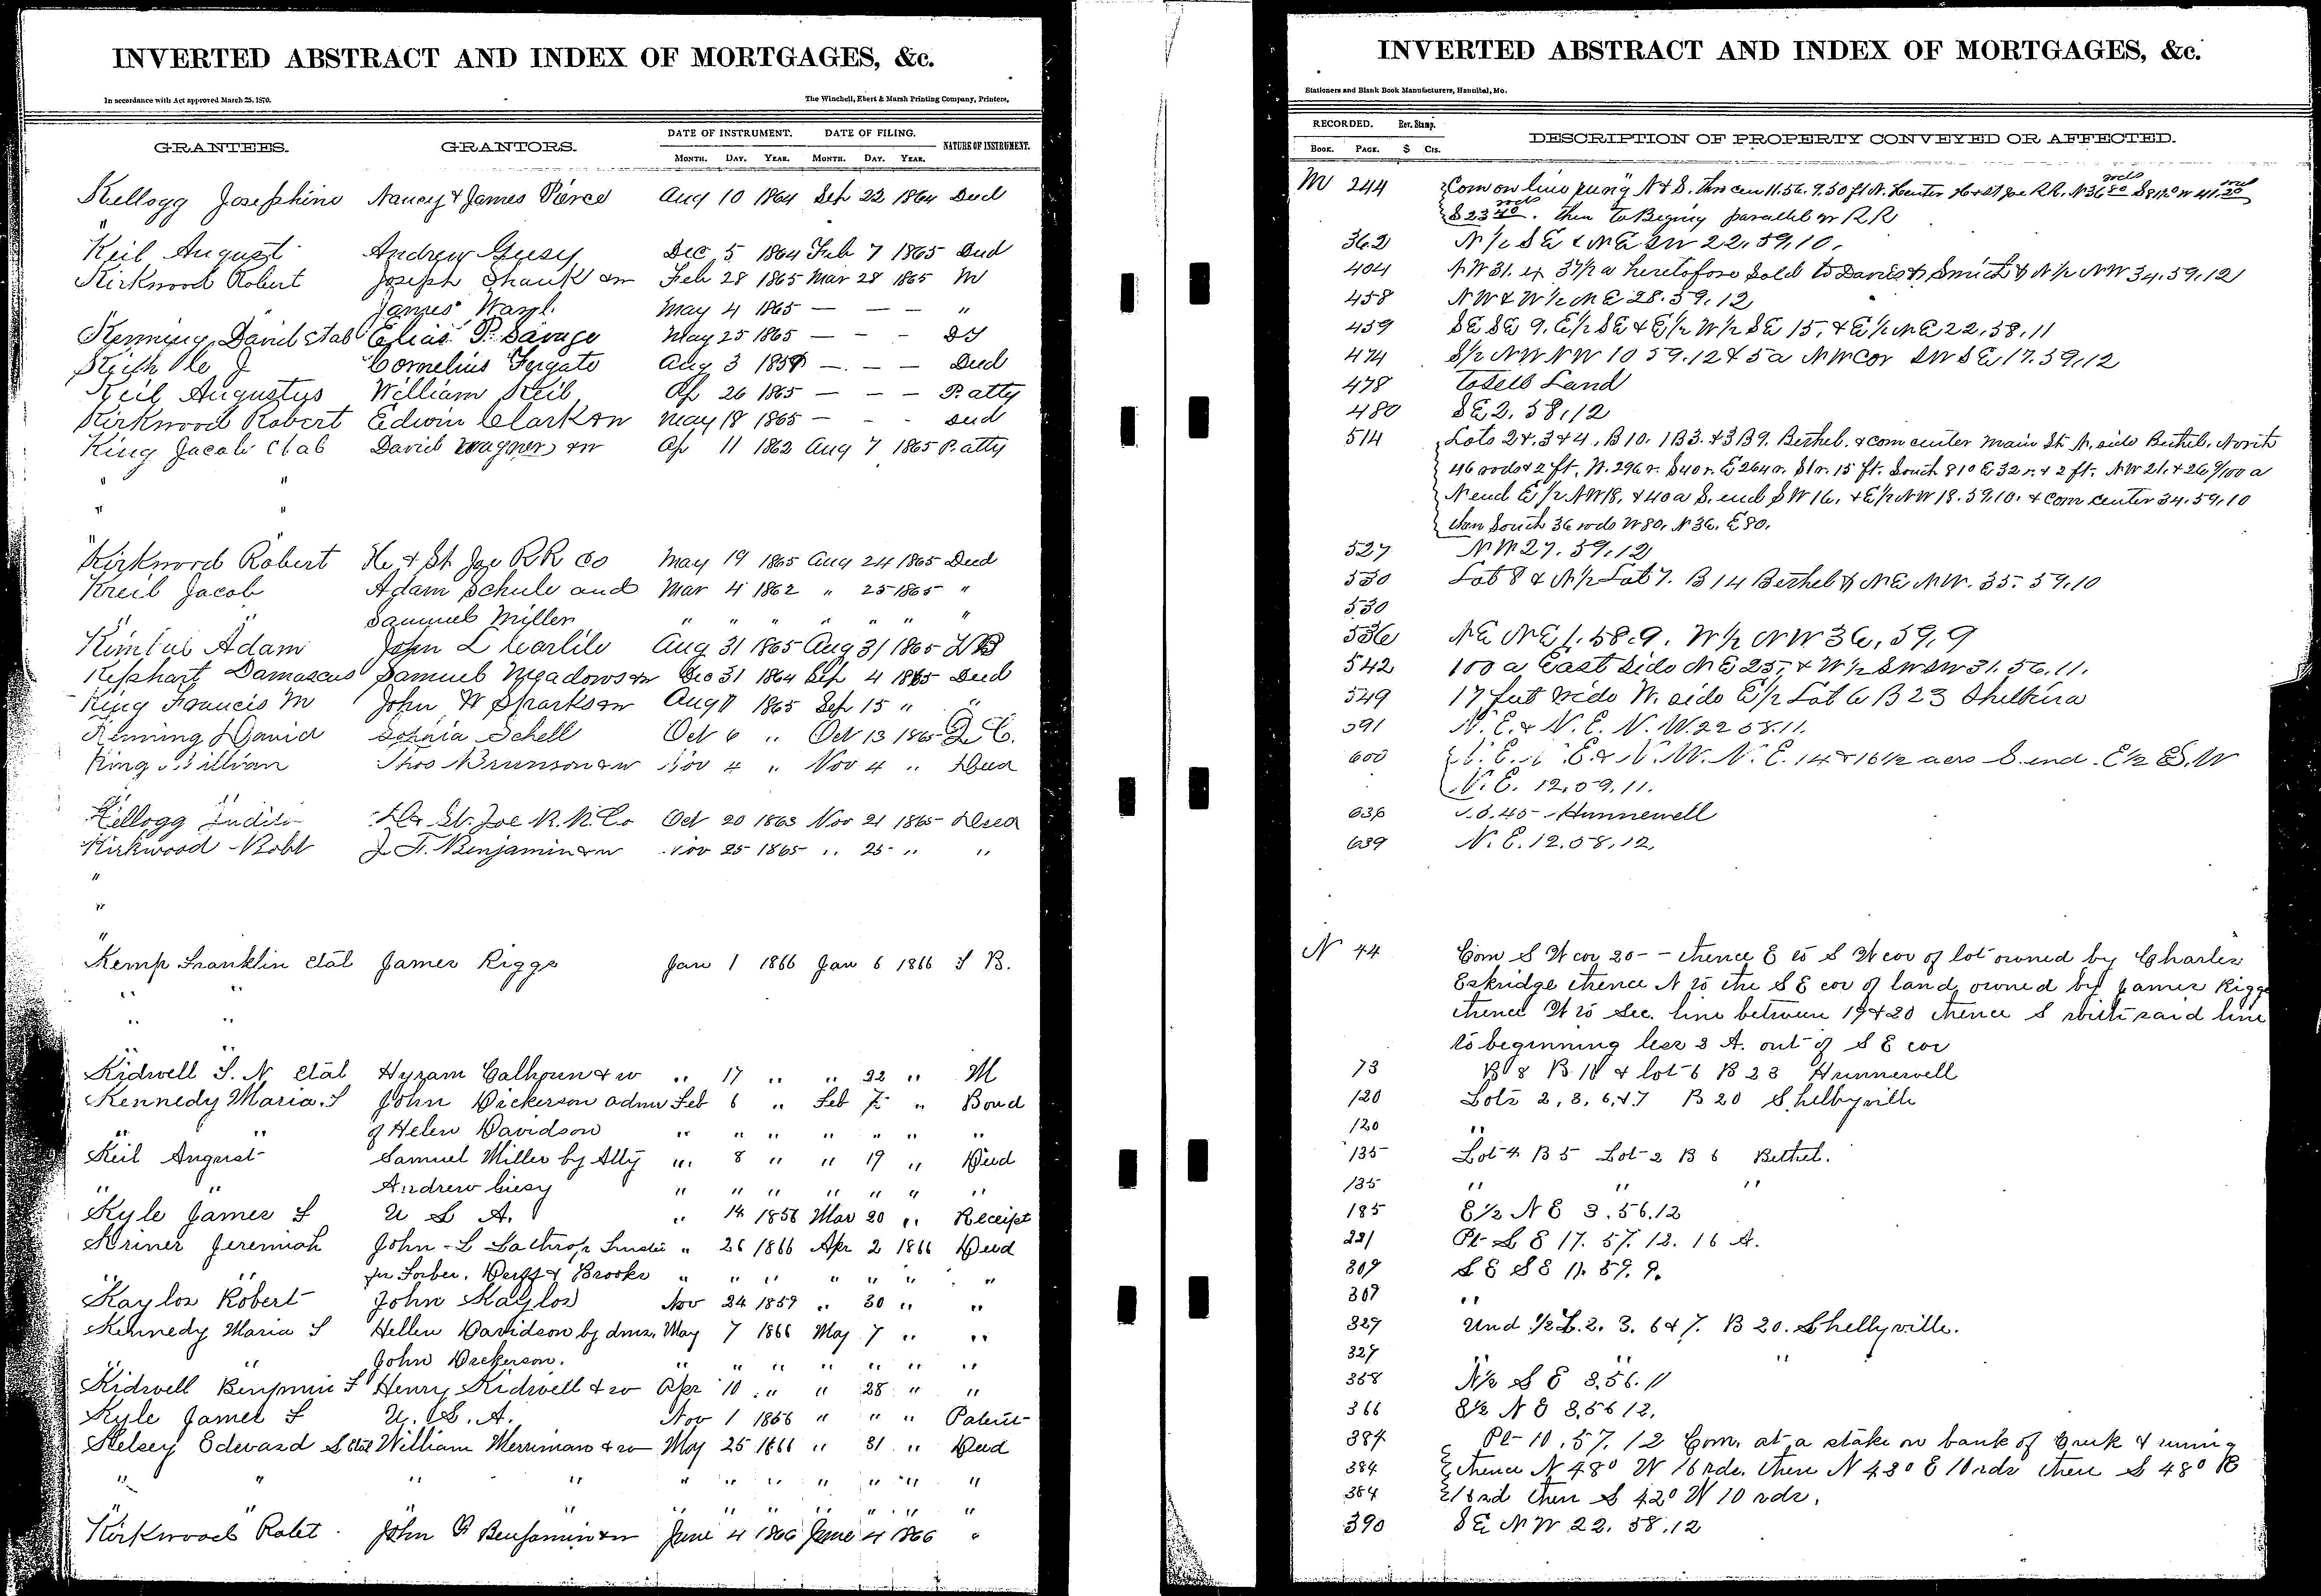 INVERTED ABSTRACT AND INDEX OF MORTGAGES, &c.
In accordance with Act approved March 25, 1870.
The Winchell, Ebert & Marsh Printing Company, Printers,
GRANTEES. GRANTORS. DATE OF INSTRUMENT. DATE OF FILING. NATURE OF INSTRUMENT.
MONTH. DAY. YEAR. MONTH. DAY. YEAR.
Kellogg Josephine Nancy & James Pierce Aug 10 1864 Sep 22 1864 Deed
Keil August Andrew Giesy Dec 5 1864 Feb 7 1865 Deed
Kirkwood Robert Joseph Shank &w Feb 28 1865 Mar 28 1865 M
James May 4 1865 — — — "
David etal Elias P. Savage May 25 1865 — — -
Cornelius Aug 3 — — — Deed
Keil Augustus William Keil Ap 26 1865 — — — P. atty
Kirkwood Robert Edwin Clark &w May 18 1865 — - - Deed
King Jacob etal David Wagner &w Ap 11 1862 Aug 7 1865 P. atty
" "
" "
"
Kirkwood Robert H & St Joe RR Co May 19 1865 Aug 24 1865 Deed
Kreil Jacob Adam Schule and Mar 4 1862 " 25 1865 "
" " Samuel Miller " " " " " " "
Adam John L Carlile Aug 31 1865 Aug 31 1865
Kephart Damascus Samuel Meadows &w Dec 31 1864 Sep 4 1865 Deed
King Francis M John W Sparks &w Aug 1865 Sep 15 " "
Kenning David Sophia Schell Oct 6 " Oct 13 1865 Q C.
King William Thos Brunson &w Nov 4 " Nov 4 " Deed
" "
Kellogg H & St. Joe R. R. Co Oct 20 1863 Nov 21 1865 Deed
Kirkwood Robt J. F. Benjamin &w Nov 25 1865 " 25 " "
"
"
"
Kemp Franklin etal James Riggs Jan 1 1866 Jan 6 1866 B.
" "
" "
" "
Kidwell S. N etal Hyram Calhoun & w " 17 " " 22 " M
Kennedy Maria. S John Dickerson admr Feb 6 " Feb 7 " Bond
" " of Helen Davidson " " " " " " "
Keil August Samuel Miller by Atty " 8 " " 19 " Deed
" " Andrew Giesy " " " " " " "
Kyle James S U S A. " 14 1856 Mar 20 " Receipt
Kriner Jeremiah John L Lathrop Trustee " 26 1866 Apr 2 1866 Deed
" " for & Brooks " " " " " " "
Kaylor Robert John Kaylor Nov 24 1859 " 30 " "
Kennedy Maria S Hellen Davidson by dmr. May 7 1866 May 7 " "
" " John Dickerson. " " " " " " "
Kidwell Benjamin F Henry Kidwell & w Apr 10 " " 28 " "
Kyle James S U. S. A. Nov 1 1856 " " " Patent
Kelsey Edward S etal William Merriman & w May 25 1866 " 31 " Deed
" " " " " " " " " " "
" " " " " " " " " " "
Kirkwood Robt. John F Benjamin &w June 4 1866 June 4 1866 "
INVERTED ABSTRACT AND INDEX OF MORTGAGES, &c.
Stationers and Blank Book Manufacturers, Hannibal, Mo.
RECORDED. Rev. Stamp. DESCRIPTION OF PROPERTY CONVEYED OR AFFECTED.
BOOK. PAGE. $ Cts.
M 244 Com on line N & S. thro cen 11.56.9.50 ft N. Center H & St Joe RR.
rods. then to Begin'g parallel w RR
362 N ½ SE & NE SW 22.59.10.
404 NW 31. ex 37½ a heretofore sold to Smith & N½ NW 34.59.12
458 NW & W½ NE 28.59.12
459 SE SE 9. E½ SE & E½ W½ SE 15, & E½ NE 22.58.11
474 S½ NW NW 10 59.12 & 5a NW Cor SW SE 17.59.12
478 To sell Land
480 SE 2. 58.12
514 Lots 2 &. 3 & 4, B 10. 1 B 3. & 3 B 9. Bethel. & com center Main St N. side Bethel. North
46 rods & 2 ft. W. 296 r. S 40 r. E 264 r. S 1 r. 15 ft. South 81° E 32 r. & 2 ft. NW 21. & 26 9/100 a
N end E ½ NW 18. & 40 a S. end SW 16. & E½ NW 18.59.10. & com center 34.59.10
then South 36 rods W 80. N 36. E 80.
527 NW 27. 59.12
530 Lot 8 & N½ Lot 7. B 14 Bethel & NE NW. 35. 59.10
530
536 NE NE 1.58.9. W½ NW 36.59.9
542 100 a East side NE 25, & W½ SW SW 31.56.11.
549 17 feet wide W. side E½ Lot 6 B 23 Shelbina
591 N. E. & N. E. N. W. 22 58.11.
600 N. E. N. E. & N. W. N. E. 14 & 16½ acrs S. end. E½ S. W
N. E. 12.59.11.
636 45 Hunnewell
639 N. E. 12.58.12.
N 44 Com S W cor 20 - - thence E to S W cor of lot owned by Charles
Eskridge thence N to the S E cor of land owned by James Riggs
thence W to Sec. line between 19 & 20 thence S with said line
to beginning less 3 A. out of S E cor
73 B 8 B 10 & lot 6 B 23 Hunnewell
120 Lots 2, 3, 6, & 7 B 20 Shelbyville
120 "
135 Lot 4 B 5 Lot 2 B 6 Bethel.
135 " " "
185 E½ N E 3.56.12
221 Pt S E 17. 57. 12. 16 A.
309 S E S E 11. 59. 9.
309 "
329 Und ½ L. 2. 3. 6 & 7. B 20. Shelbyville.
329 " " "
358 N½ S E 3.56.11
366 E½ N E 3.56 12.
384 Pt 10. 57. 12 Com. at a stake on bank of Creek & runing
384 thence N 48° W 16 rds. then N 43° E 10 rds then S 48° E
384 16 rd then S 42° W 10 rds.
390 SE NW 22. 58.12